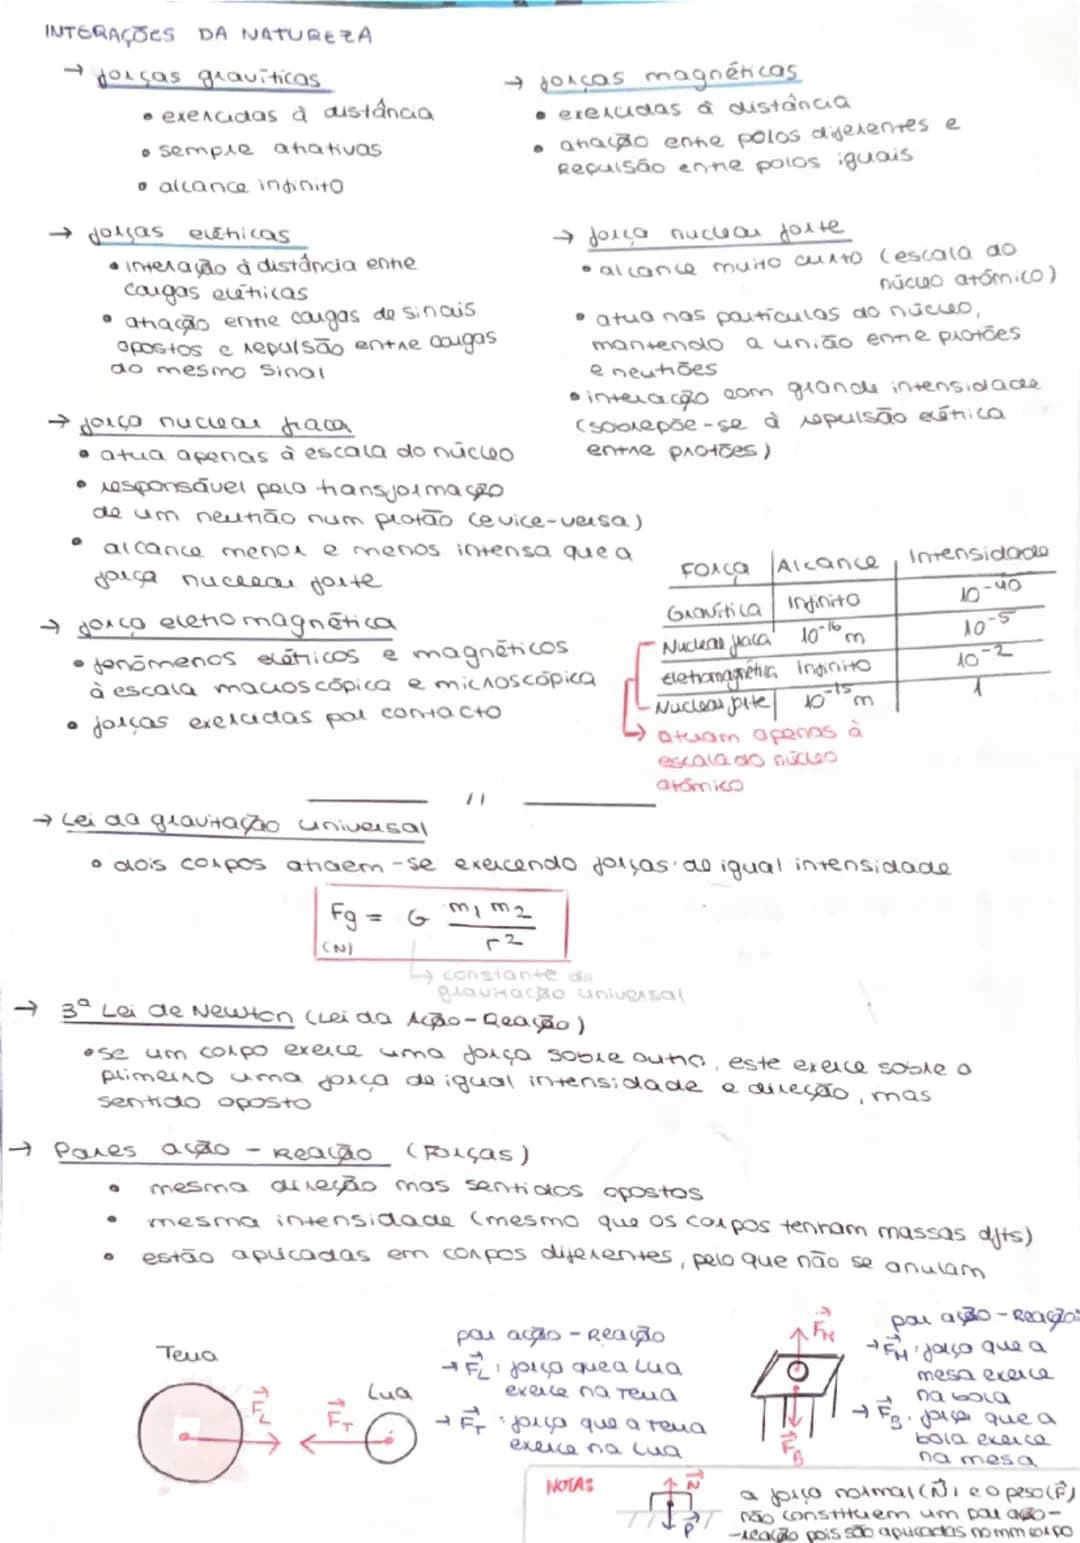 INTERAÇÕES DA NATUREZA
→ forças gravíticas
• exercidas à distância
• sempre atrativas
• alcance infinito
→ forças magnéticas
• exercidas à distância
• atração entre polos diferentes e
Repulsão entre polos iguais
→ forças elétricas
• interação à distância entre
cargas elétricas
• atração entre cargas de sinais
opostos e repulsão entre cargas
do mesmo sinal
→ força nuclear forte
• alcance muito curto (escala do
núcleo atómico)
• atua nas partículas do núcleo,
mantendo a união entre protões
e neutrões
• interacção com grande intensidade
(sobrepõe-se à repulsão elétrica
entre protões)
→ força nuclear fraca
• atua apenas à escala do núcleo
• responsável pela transformação
de um neutrão num protão (e vice-versa)
• alcance menor e menos intensa que a
força nuclear forte
→ força eletromagnética
• fenómenos elétricos e magnéticos
à escala macroscópica e microscópica
• forças exercidas por contacto
Força Alcance Intensidade
Gravítica Infinito 10⁻⁴⁰
Nuclear fraca 10⁻¹⁶ m 10⁻⁵
Eletromagnética Infinito 10⁻²
Nuclear forte 10⁻¹⁵ m 1
→ atuam apenas à
escala do núcleo
atómico
//
→ Lei da gravitação universal
• dois corpos atraem-se exercendo forças de igual intensidade
Fg = G m₁ m₂ / r²
(N)
→ constante de
gravitação universal
→ 3ª Lei de Newton (Lei da Ação-Reação)
• se um corpo exerce uma força sobre outro, este exerce sobre o
primeiro uma força de igual intensidade e direção, mas
sentido oposto
→ Pares ação - Reação (Forças)
• mesma direção mas sentidos opostos
• mesma intensidade (mesmo que os corpos tenham massas dfts)
• estão aplicadas em corpos diferentes, pelo que não se anulam
Terra
F⃗L
F⃗T
Lua
par ação - Reação
→ F⃗L: força que a Lua
exerce na Terra
→ F⃗T: força que a Terra
exerce na Lua
F⃗M
F⃗B
par ação - Reação:
→ F⃗M: força que a
mesa exerce
na bola
→ F⃗B: força que a
bola exerce
na mesa
NOTA:
N⃗
P⃗
a força normal (N⃗) e o peso (P⃗)
não constituem um par ação-
-reação pois são aplicadas no mm corpo